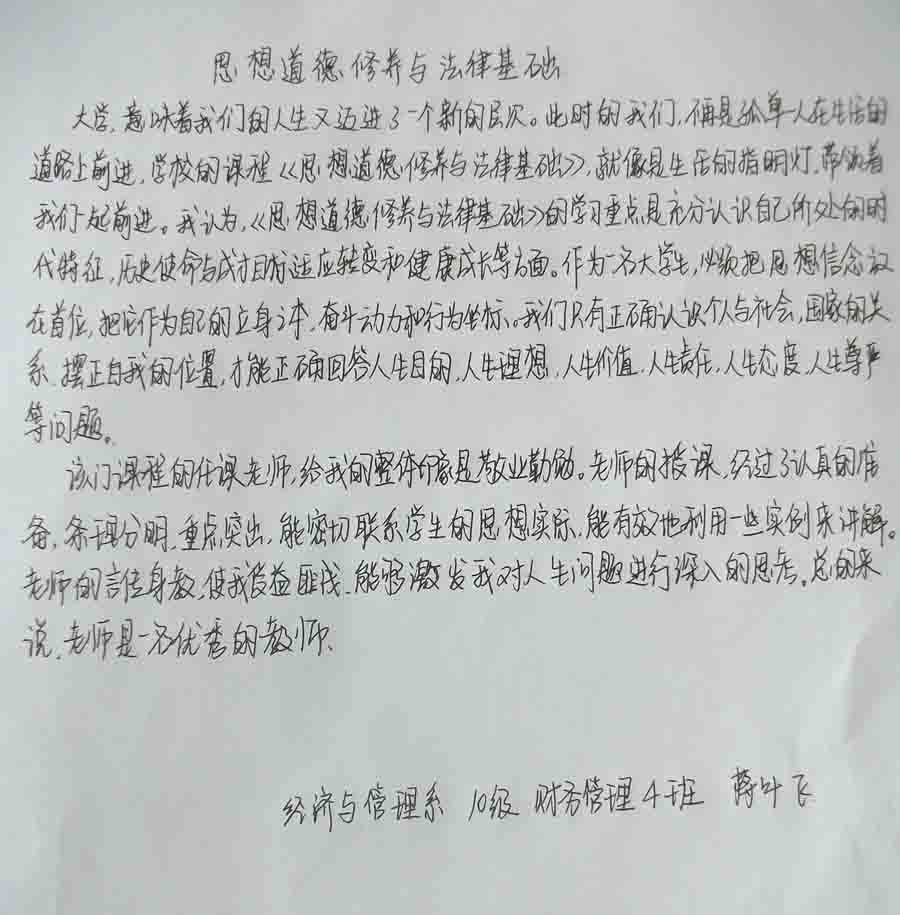 思想道德修养与法律基础
大学,意味着我们的人生又迈进了一个新的层次。此时的我们,不再是孤单一人在生活的
道路上前进,学校的课程《思想道德修养与法律基础》,就像是生活的指明灯,带领着
我们一起前进。我认为,《思想道德修养与法律基础》的学习重点是充分认识自己所处的时
代特征,历史使命与成才目标适应转变和健康成长等方面。作为一名大学生,必须把思想信念放
在首位,把它作为自己的立身之本,奋斗动力和行为坐标。我们只有正确认识个人与社会,国家的关
系.摆正自我的位置,才能正确回答人生目的,人生理想,人生价值,人生责任,人生态度,人生尊严
等问题。
该门课程的任课老师,给我的整体印象是敬业勤勉。老师的授课,经过了认真的准
备,条理分明,重点突出,能密切联系学生的思想实际,能有效地利用一些实例来讲解。
老师的言传身教,使我受益匪浅.能够激发我对人生问题进行深入的思考。总的来
说,老师是一名优秀的教师.
经济与管理系 10级 财务管理4班 蒋叶飞